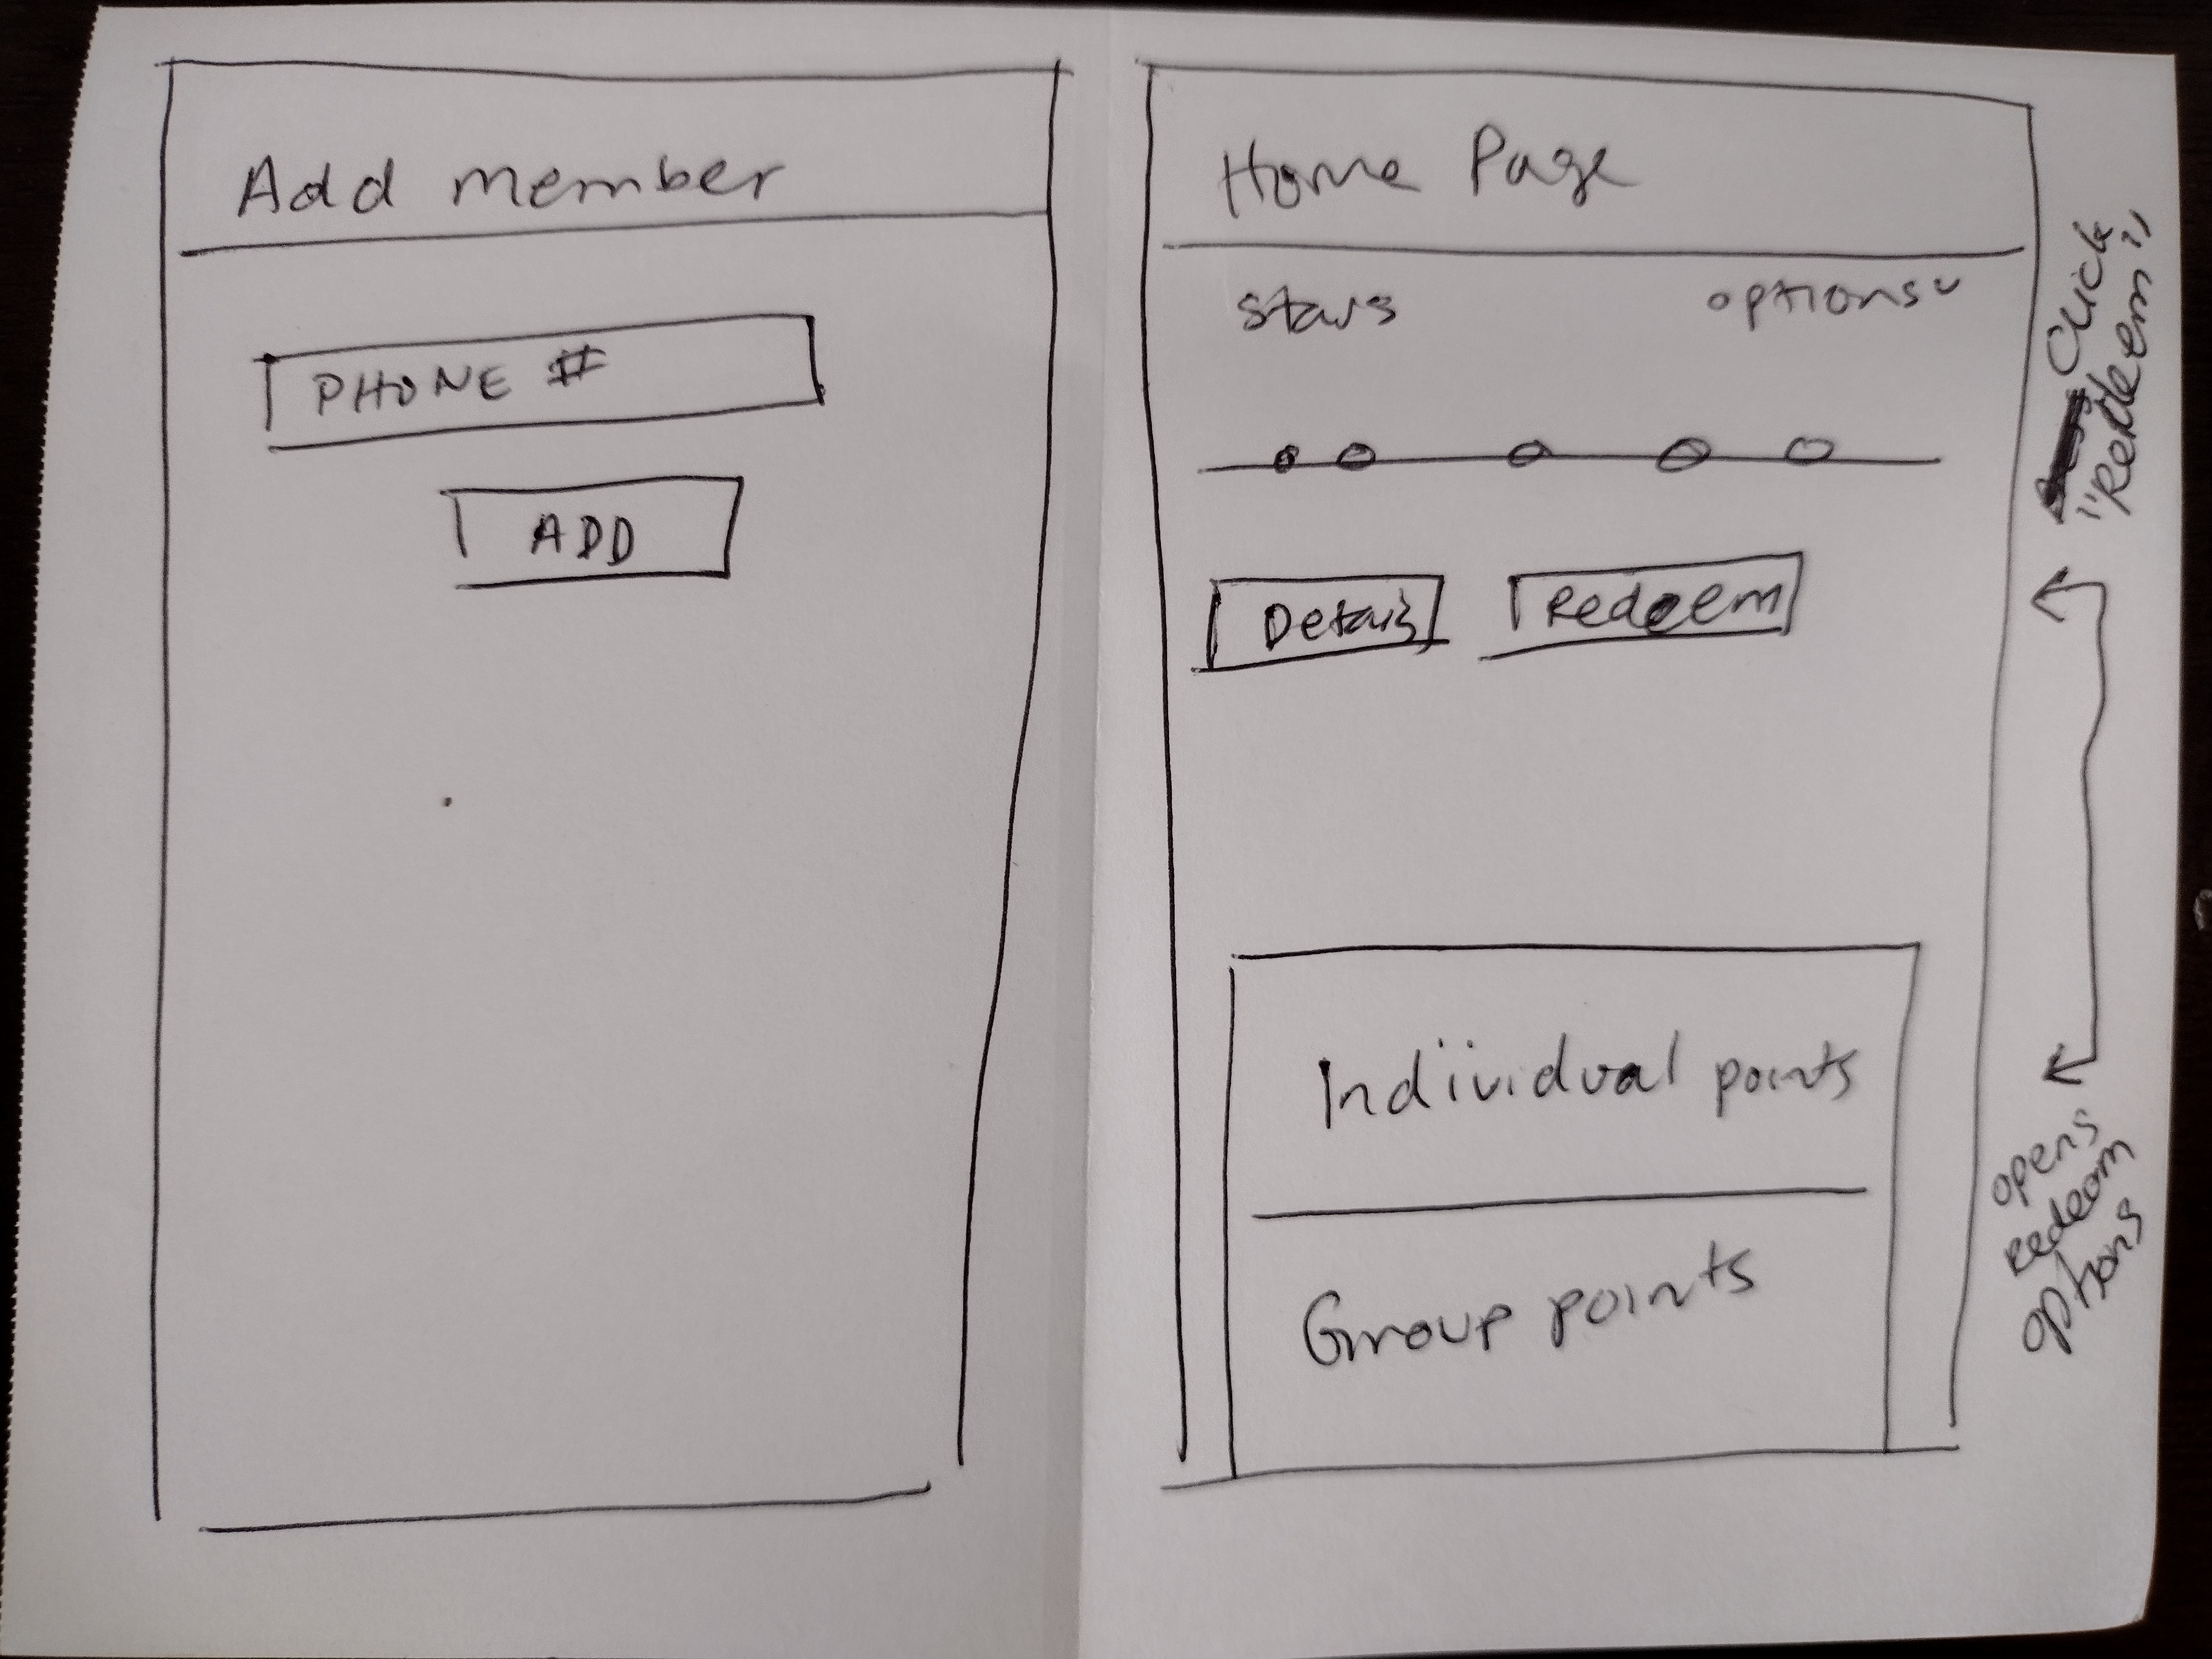 Add member
PHONE #
ADD
Home Page
stars options
Details Redeem
Individual points
Group points
Click
"Redeem"
opens
redeem
options